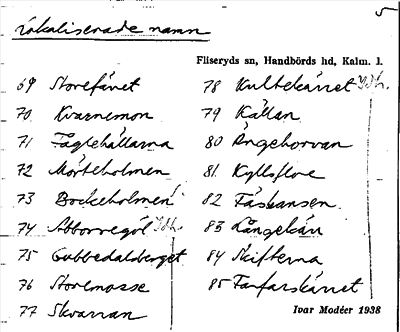 5
Lokaliserade namn
Fliseryds sn, Handbörds hd, Kalm. l.
69 Storefänet
70 Kvarnemon
71 Faglehällarna
72 Mörteholmen
73 Bockeholmen
74 Abborregöl Idh.
75 Gubbedalsberget
76 Storemosse
77 Skvarran
78 Kultekärret Idh.
79 Källan
80 Ängehorvan
81 Kyllsfloe
82
83 Långekärr
84 Skifterna
85 Farfarskärret
Ivar Modéer 1938